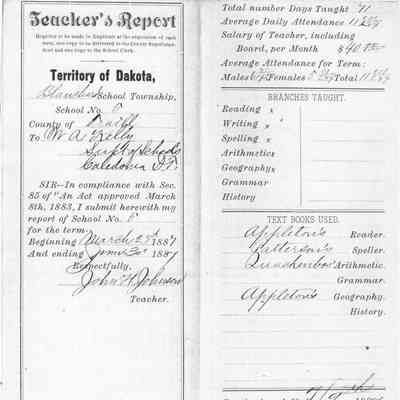 Teacher's Report
Required to be made in duplicate at the expiration of each
term, one copy to be delivered to the County Superinten-
dent and one copy to the School Clerk.
Territory of Dakota,
School Township,
School No. 6
County of Traill
To W A Kelly
Supt of Schools
Caledonia D.T.
SIR—In compliance with Sec.
85 of "An Act approved March
8th, 1883, I submit herewith my
report of School No. 6
for the term:
Beginning March 28th 1887
And ending June 30 1887
Respectfully,
John H. Johnson
Teacher.
Total number Days Taught 71
Average Daily Attendance
Salary of Teacher, including
Board, per Month $40
Average Attendance for Term:
Males Females Total
BRANCHES TAUGHT.
Reading x
Writing x
Spelling x
Arithmetic x
Geography x
Grammar
History
TEXT BOOKS USED.
Appleton's Reader.
Patterson's Speller.
Quackenbos' Arithmetic.
Grammar.
Appleton's Geography.
History.